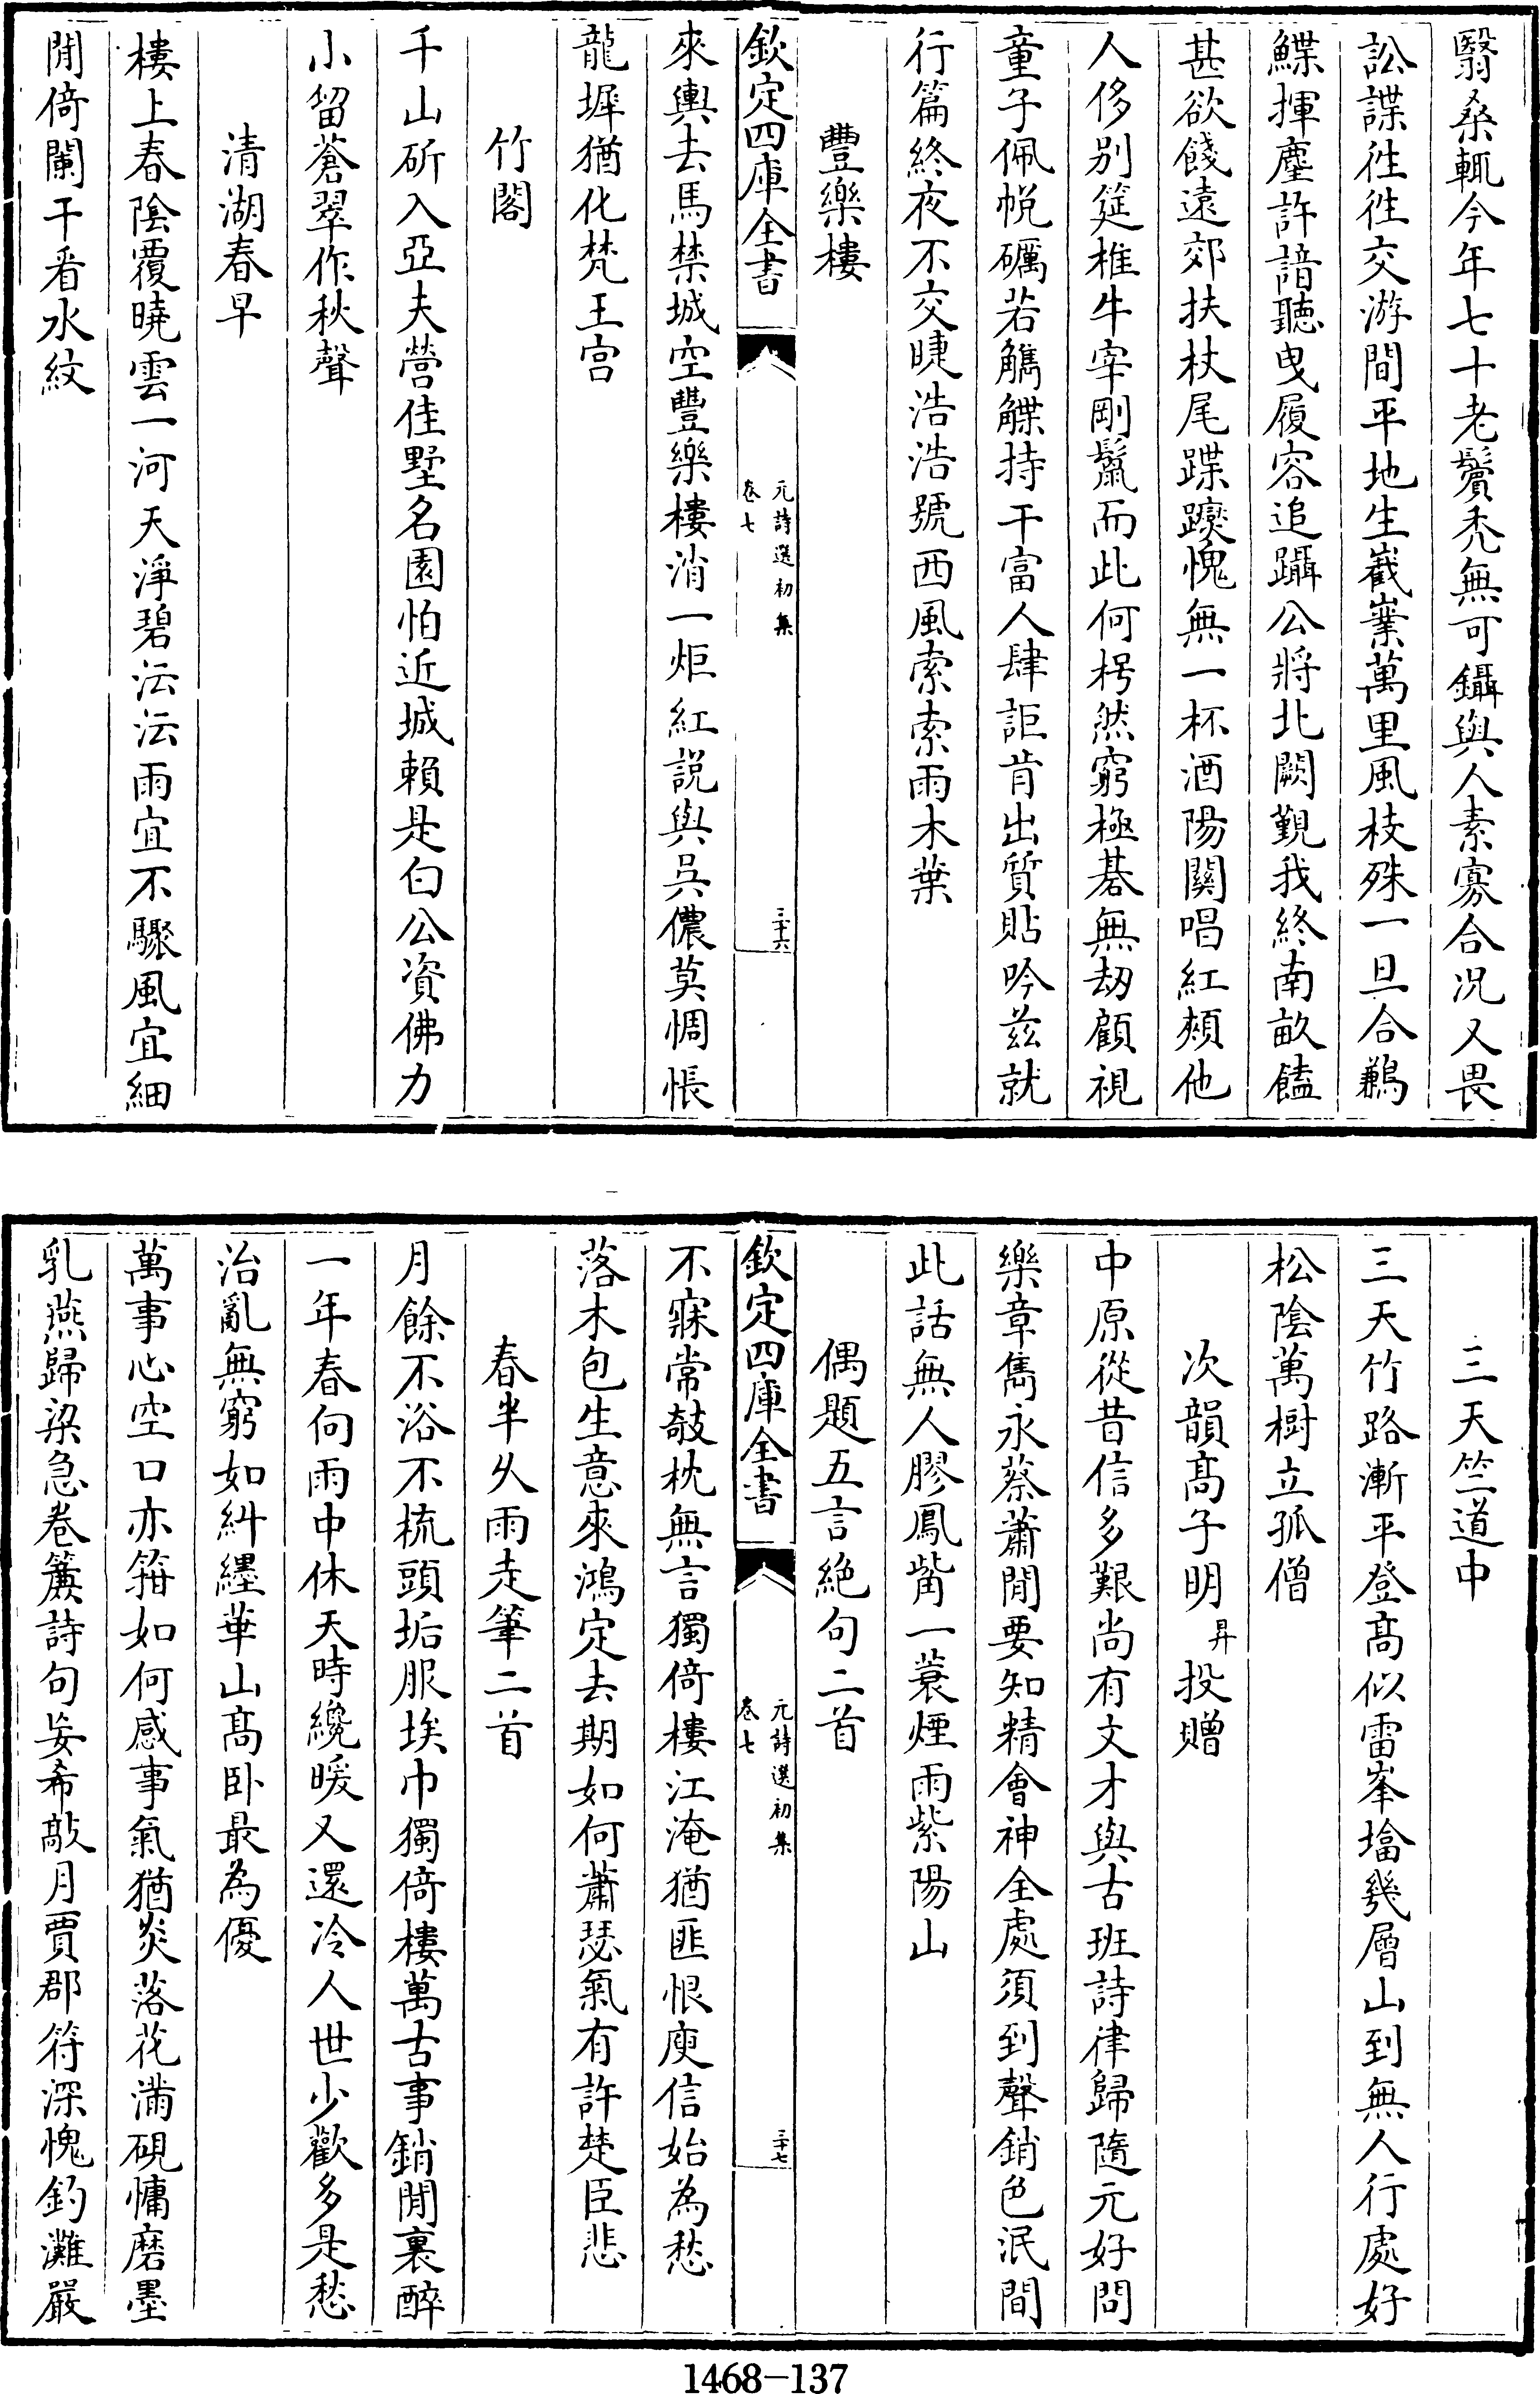 翳桑輒今年七十老鬢禿無可鑷與人素寡合况又畏
訟諜徃徃交游間平地生嶻嶪萬里風枝殊一旦合鶼
鰈揮塵許諳聽曳履容追躡公將北闕覲我終南畝饁
甚欲餞遠郊扶杖尾蹀躞愧無一杯酒陽關唱紅頰他
人侈别筵椎牛宰剛鬛而此何枵然窮極碁無刼顧視
童子佩帨礪若觿觽持干富人肆詎肯出質貼吟兹就
行篇終夜不交睫浩浩號西風索索雨木葉
豐樂樓
欽定四庫全書
元詩選初集
卷七
三十六
來輿去馬禁城空豐樂樓消一炬紅説與吳儂莫惆悵
龍墀猶化梵王宫
竹閣
千山斫入亞夫營佳墅名園怕近城賴是白公資佛力
小留蒼翠作秋聲
清湖春早
樓上春陰覆曉雲一河天淨碧沄沄雨宜不驟風宜細
閒倚闌干看水紋
三天竺道中
三天竹路漸平登髙似雷峯墖幾層山到無人行處好
松陰萬樹立孤僧
次韻髙子明昇投贈
中原從昔信多艱尚有文才與古班詩律歸隨元好問
樂章雋永蔡蕭閒要知精會神全處須到聲銷色泯間
此話無人膠鳳觜一蓑煙雨紫陽山
偶題五言絶句二首
欽定四庫全書
元詩選初集
卷七
三十七
不寐常攲枕無言獨倚樓江淹猶匪恨庾信始為愁
落木包生意來鴻定去期如何蕭瑟氣有許楚臣悲
春半久雨走筆二首
月餘不浴不梳頭垢服埃巾獨倚樓萬古事銷閒裏醉
一年春向雨中休天時纔暖又還冷人世少歡多是愁
治亂無窮如糾纆華山髙卧最為優
萬事心空口亦箝如何感事氣猶炎落花滿硯慵磨墨
乳燕歸梁急卷簾詩句妄希敲月賈郡符深愧釣灘嚴
1468-137